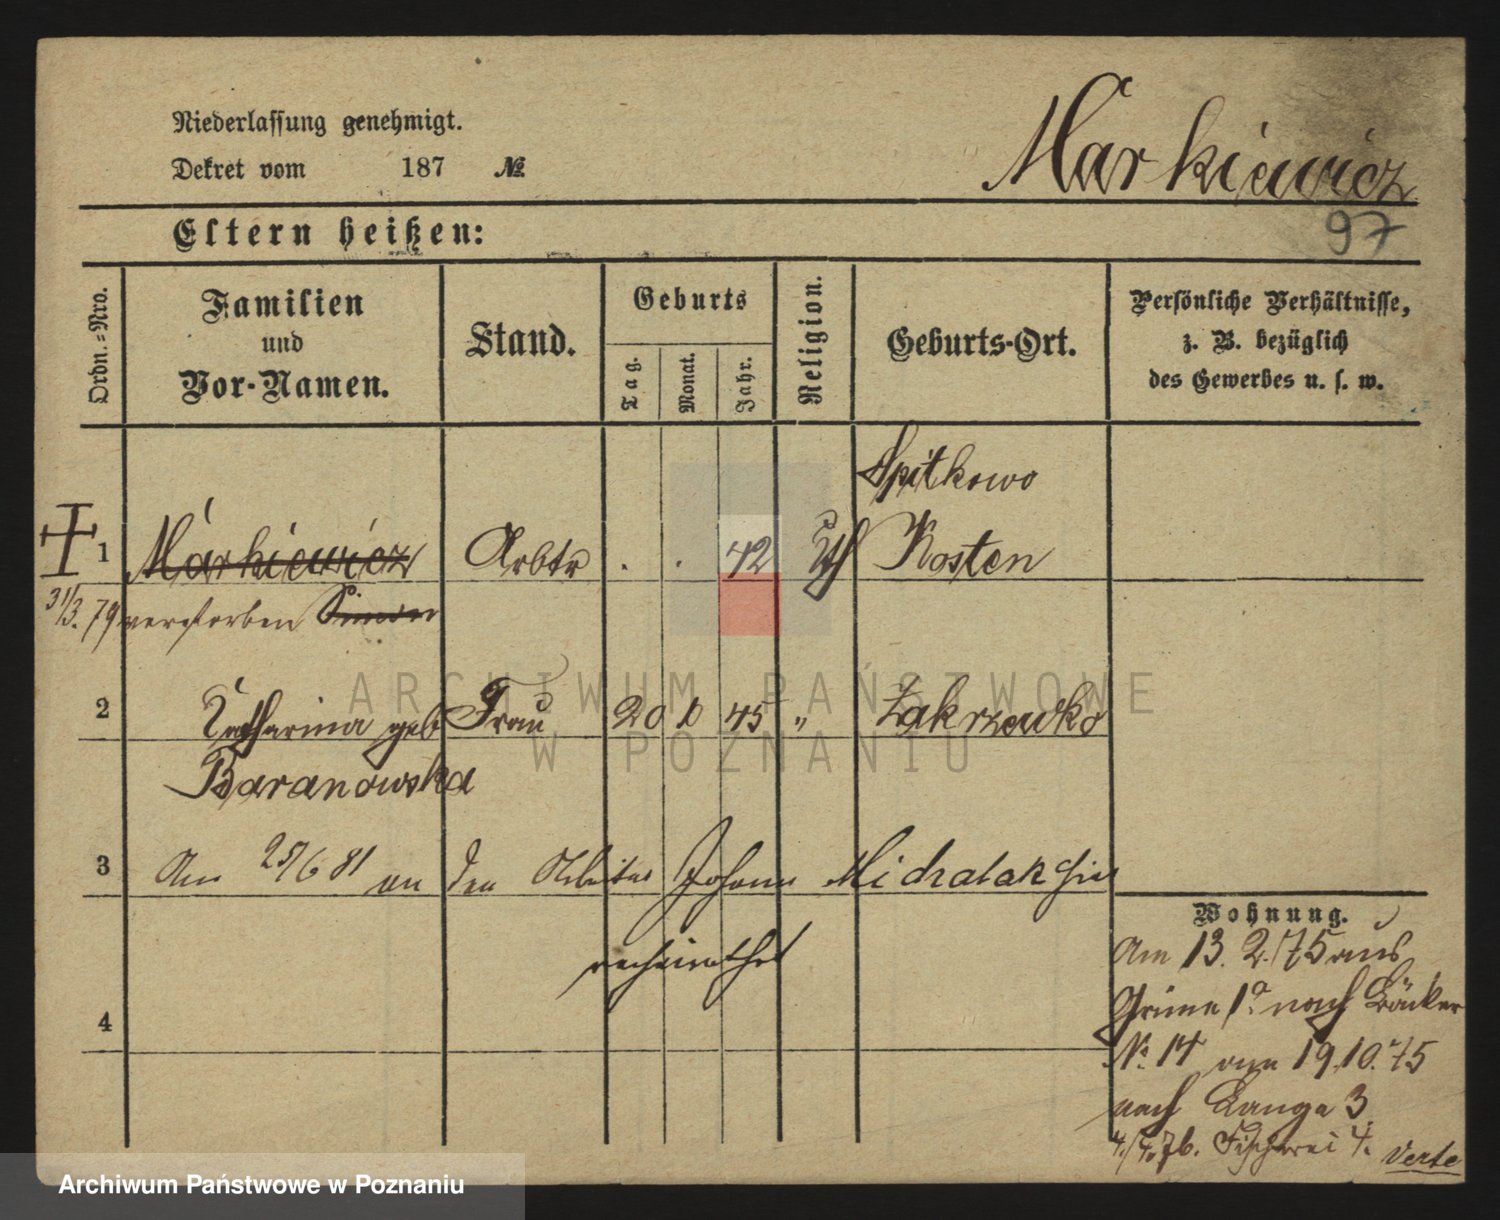 Niederlassung genehmigt.
Dekret vom 187 №
Markiewicz
97
Eltern heißen:
Ordn.-Nro.
Familien
und
Vor-Namen.
Stand.
Geburts
Tag.
Monat.
Jahr.
Religion.
Geburts-Ort.
Persönliche Verhältnisse,
z. B. bezüglich
des Gewerbes u. s. w.
Spitkowo
1 Markiewicz Arbtr . . 42 Kth Kosten
31/3. 79 verstorben Simon
2 Catharina geb Frau 20 10 45 " Zakrzewko
Baranowska
3 Am 25/6 81 an den Arbeiter Johann Michalak hier
verheirathet
4
Wohnung.
Am 13. 2./75 aus
Grüne 1a nach Bäcker
№ 14 am 19.10.75
nach Lange 3
4./4.76. Fischerei 4.
Verte
ARCHIWUM PAŃSTWOWE
W POZNANIU
Archiwum Państwowe w Poznaniu